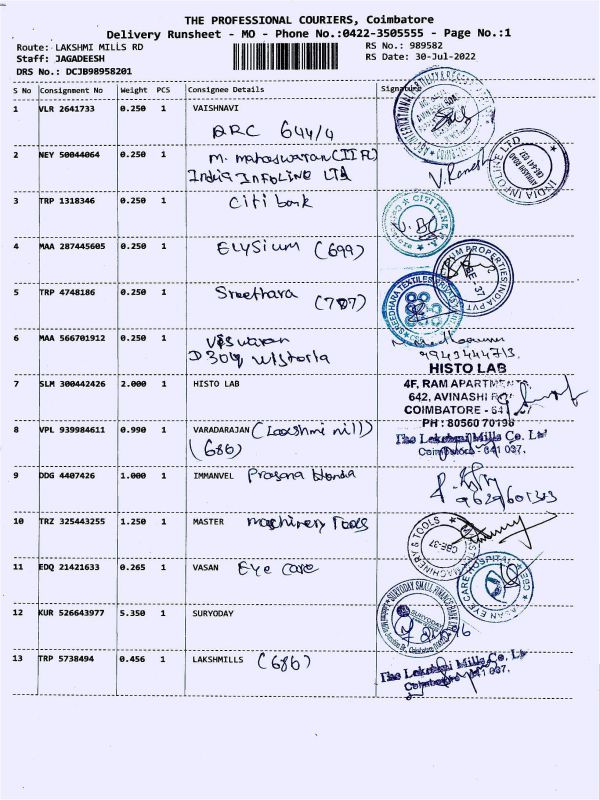 THE PROFESSIONAL COURIERS, Coimbatore
Delivery Runsheet - MO - Phone No.:0422-3505555 - Page No.:1
Route: LAKSHMI MILLS RD RS No.: 989582
Staff: JAGADEESH RS Date: 30-Jul-2022
DRS No.: DCJB98958201
S No Consignment No Weight PCS Consignee Details Signature
1 VLR 2641733 0.250 1 VAISHNAVI
ARC 644/4
2 NEY 50044064 0.250 1 M. Mahaswaran (IIFL)
India INFOLINE LTD
V. Ramesh
INDIA INFOLINE LTD.
3 TRP 1318346 0.250 1 Citi bank
CITI BANK N.A.
4 MAA 287445605 0.250 1 ELYSium (699)
PROPERTIES INDIA PVT
5 TRP 4748186 0.250 1 Sreethara (707)
SREEDHARA TEXTILES PRIVATE
6 MAA 566701912 0.250 1 Viswaran
D 304 Wistoria
7 SLM 300442426 2.000 1 HISTO LAB
HISTO LAB
4F, RAM APARTMENTS
642, AVINASHI
COIMBATORE - 641
PH : 80560 70198
8 VPL 939984611 0.990 1 VARADARAJAN (Laxshmi mill)
(686)
The Lakshmi Mills Co. Ltd
Coimbatore - 641 037.
9 DDG 4407426 1.000 1 IMMANVEL Prasana Honda
10 TRZ 325443255 1.250 1 MASTER machinery Tools
MACHINERY & TOOLS
CBE-37
11 EDQ 21421633 0.265 1 VASAN Eye Care
VASAN EYE CARE HOSPITAL
CBE
12 KUR 526643977 5.350 1 SURYODAY
SURYODAY SMALL FINANCE BANK
SURYODAY
13 TRP 5738494 0.456 1 LAKSHMILLS (686)
The Lakshmi Mills Co. Lt
Coimbatore - 641 037.